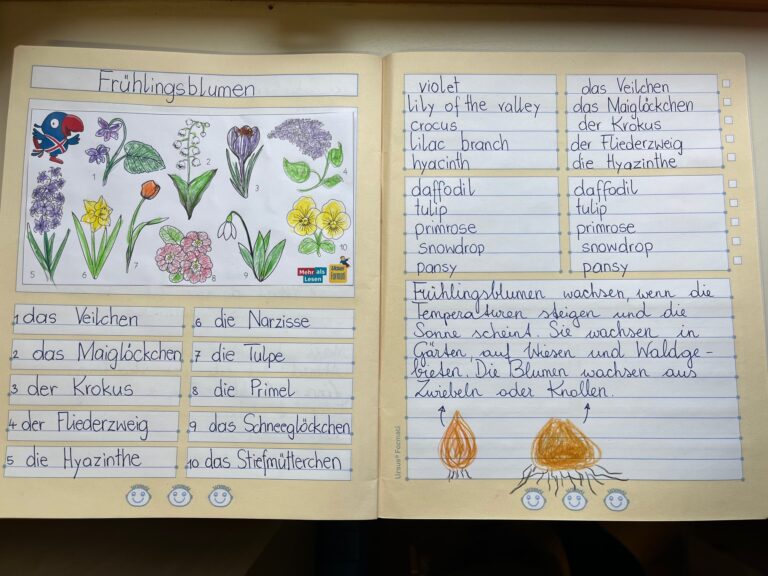 Frühlingsblumen
1
2
3
4
5
6
7
8
9
10
Mehr als
Lesen
1 das Veilchen
2 das Maiglöckchen
3 der Krokus
4 der Fliederzweig
5 die Hyazinthe
6 die Narzisse
7 die Tulpe
8 die Primel
9 das Schneeglöckchen
10 das Stiefmütterchen
violet
lily of the valley
crocus
lilac branch
hyacinth
das Veilchen
das Maiglöckchen
der Krokus
der Fliederzweig
die Hyazinthe
daffodil
tulip
primrose
snowdrop
pansy
daffodil
tulip
primrose
snowdrop
pansy
Frühlingsblumen wachsen, wenn die
Temperaturen steigen und die
Sonne scheint. Sie wachsen in
Gärten, auf Wiesen und Waldge-
bieten. Die Blumen wachsen aus
Zwiebeln oder Knollen.
Ursus® Formati